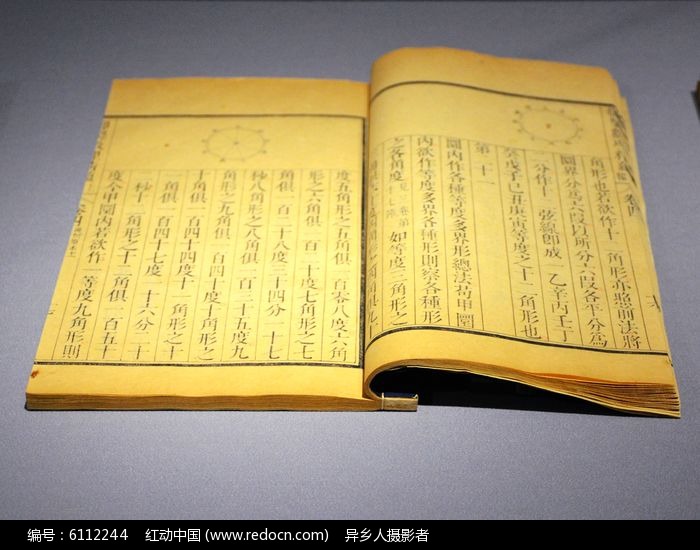 角形也若欲作十二角形亦照前法將
圜界分為六段以所分六段各平分為
二分作十二弦線即成一乙辛丙壬丁
癸戊子己丑庚寅等度之十二角形也
第二十一
圜內作各種等度多界形總法茍甲圜
內欲作等度多界各種形則察各種形
之各角度如等度三角形之
角俱九十
度五角形之五角俱一百零八度六角
形之六角俱一百二十度七角形之七
角俱一百二十八度三十四分一十七
秒八角形之八角俱一百三十五度九
角形之九角俱一百四十度十角形之
十角俱一百四十四度十一角形之十
一角俱一百四十七度一十六分二十
秒十二角形之十二角俱一百五十
度今甲圜內若欲作一等度九角形則
卷四
编号：6112244 红动中国 (www.redocn.com) 异乡人摄影者